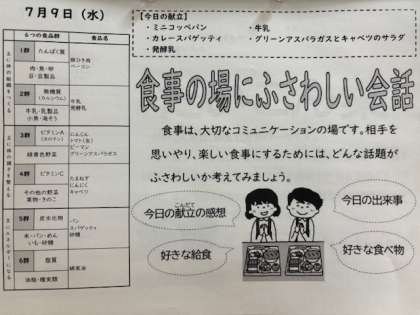 7月9日（水）
【今日の献立】
・ミニコッペパン ・牛乳
・カレースパゲッティ ・グリーンアスパラガスとキャベツのサラダ
・発酵乳
6つの食品群 食品名
1群 たんぱく質
肉・魚・卵
豆・豆製品
豚ひき肉
ベーコン
主に体の組織をつくる
2群 無機質
（カルシウム）
牛乳・乳製品
小魚・海そう
牛乳
発酵乳
3群 ビタミンA
（カロテン）
緑黄色野菜
にんじん
トマト(缶)
ピーマン
グリーンアスパラガス
主に体の調子を整える
4群 ビタミンC
その他の野菜
果物・きのこ
たまねぎ
にんにく
キャベツ
5群 炭水化物
米・パン・めん
いも・砂糖
パン
スパゲッティ
砂糖
主にエネルギーになる
6群 脂質
油脂・種実類
食事の場にふさわしい会話
食事は、大切なコミュニケーションの場です。相手を
思いやり、楽しい食事にするためには、どんな話題が
ふさわしいか考えてみましょう。
今日の献立の感想
こんだて
今日の出来事
好きな給食
好きな食べ物